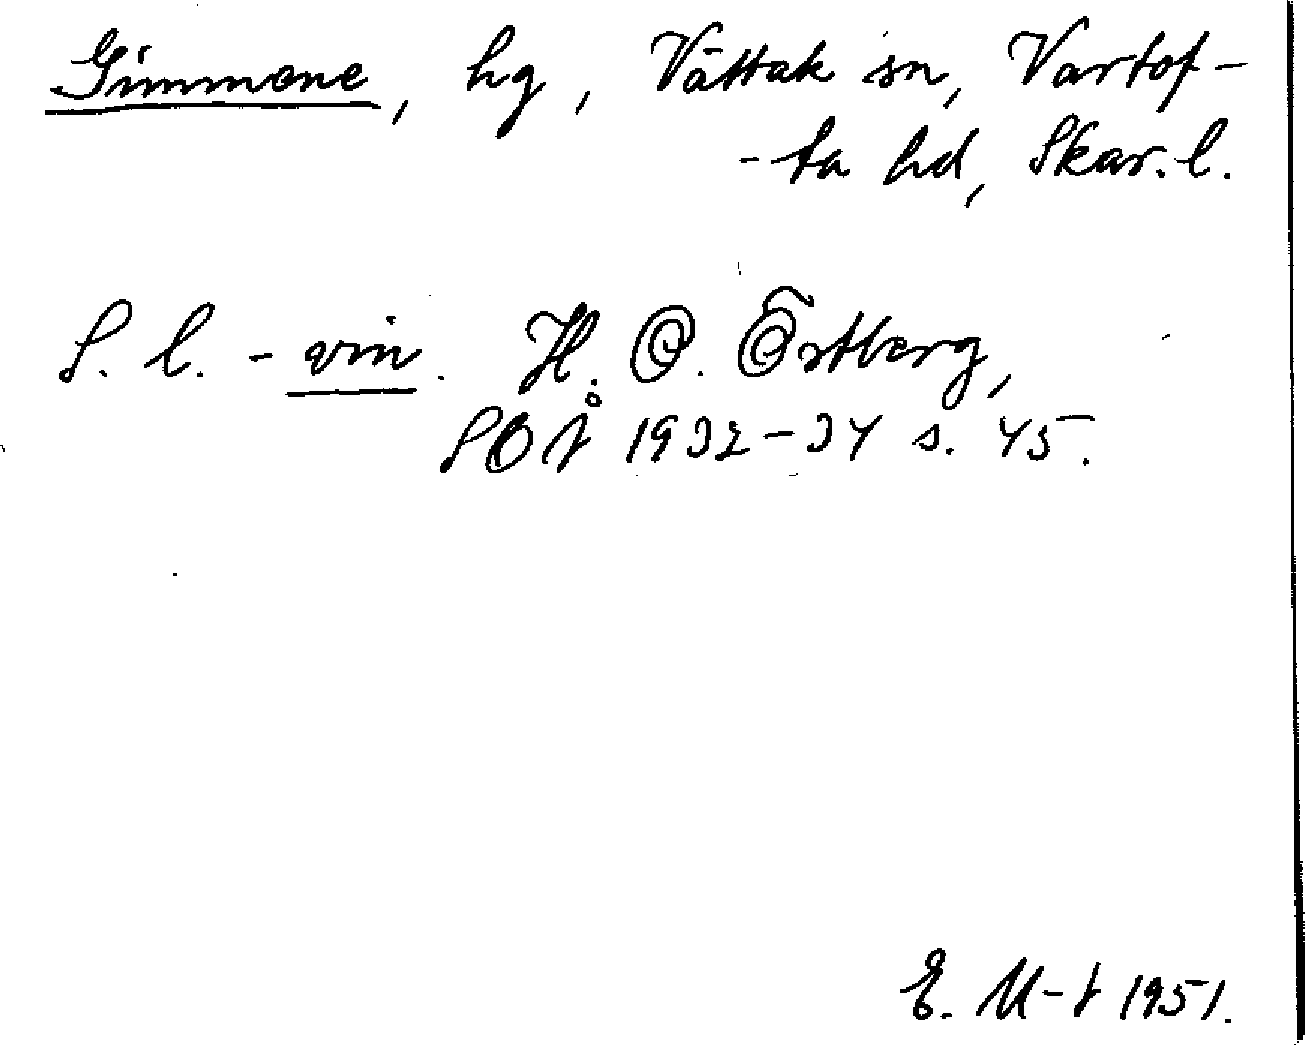 Gimmene, hg, Vättak sn, Vartof-
-ta hd, Skar. l.
S. l. -vin. H. O. Östberg,
SOÅ 1932-34 s. 45.
E. M-t 1951.